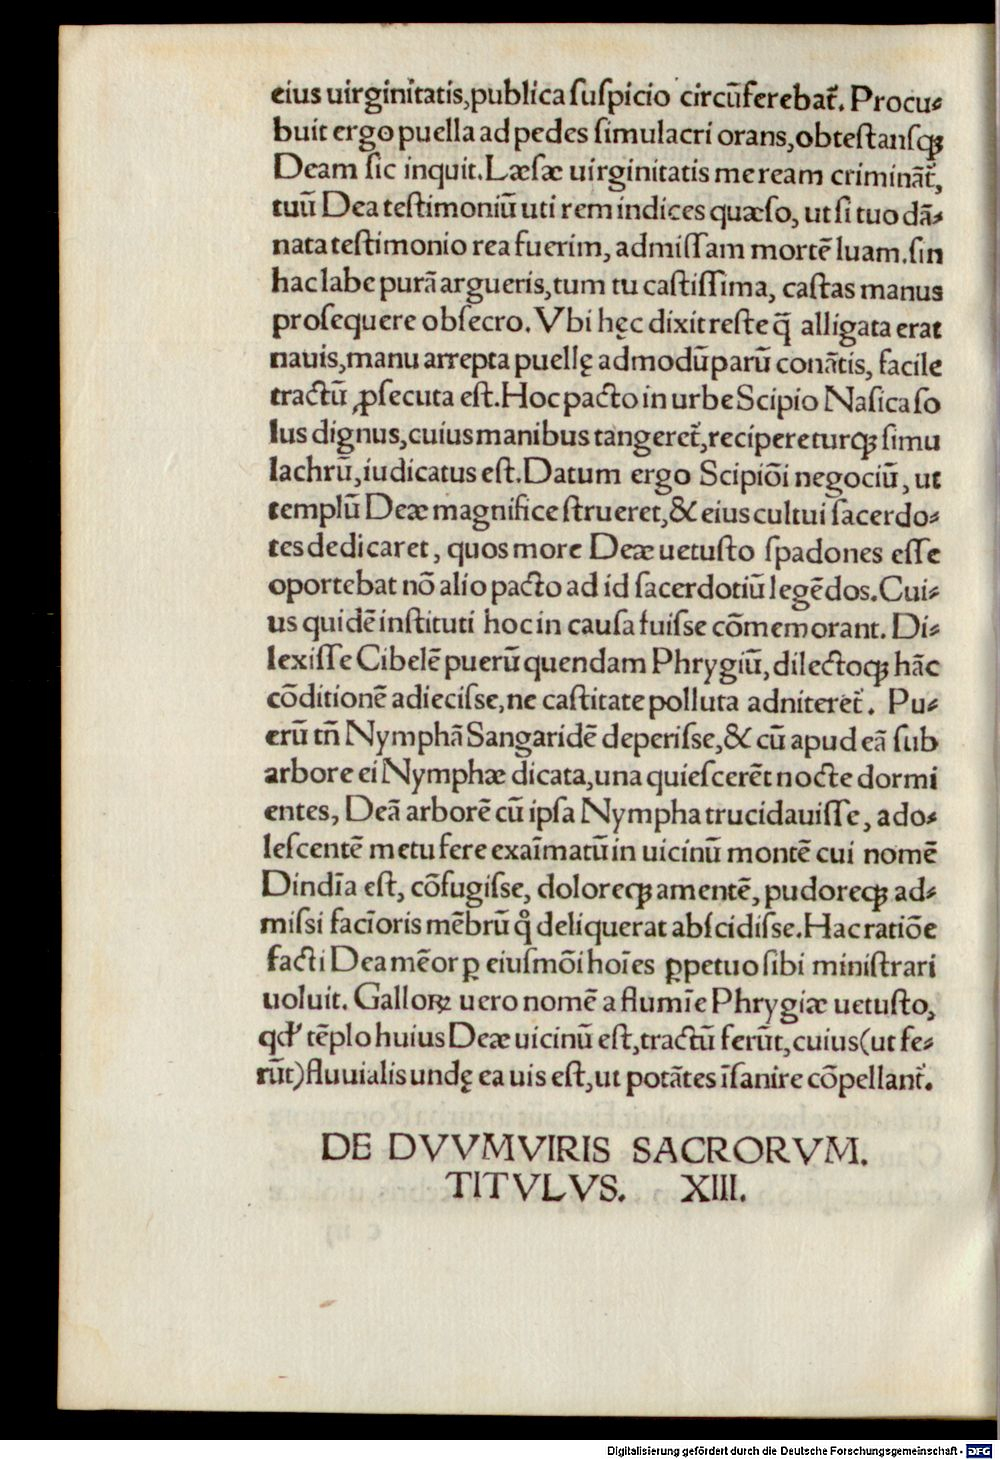 eius uirginitatis,publica ſuſpicio circũferebat᷑. Procu⸗
buit ergo puella ad pedes ſimulacri orans,obteſtanſqꝫ
Deam ſic inquit.Læſæ uirginitatis me ream criminãt᷑,
tuũ Dea teſtimoniũ uti rem indices quæſo, ut ſi tuo dã⸗
nata teſtimonio rea fuerim, admiſſam mortẽ luam.ſin
hac labe purã argueris,tum tu caſtiſſima, caſtas manus
proſequere obſecro. Vbi hęc dixit reſte q̃ alligata erat
nauis,manu arrepta puellę admodũ parũ conãtis, facile
tractũ ꝓſecuta eſt.Hoc pacto in urbe Scipio Naſica ſo
lus dignus,cuius manibus tangeret᷑,recipereturqꝫ ſimu
lachrũ,iudicatus eſt.Datum ergo Scipiõi negociũ, ut
templũ Deæ magnifice ſtrueret,& eius cultui ſacerdo⸗
tes dedicaret, quos more Deæ uetuſto ſpadones eſſe
oportebat nõ alio pacto ad id ſacerdotiũ legẽdos.Cui⸗
us quidẽ inſtituti hoc in cauſa fuiſse cõmemorant. Di⸗
lexiſſe Cibelẽ puerũ quendam Phrygiũ, dilectoqꝫ hãc
cõditionẽ adieciſse,ne caſtitate polluta adniteret᷑. Pu⸗
erũ tñ Nymphã Sangaridẽ deperiſse,& cũ apud eã ſub
arbore ei Nymphæ dicata,una quieſcerẽt nocte dormi
entes, Deã arborẽ cũ ipſa Nympha trucidauiſſe, ado⸗
leſcentẽ metu fere exaĩmatũ in uicinũ montẽ cui nomẽ
Dindĩa eſt, cõfugiſse, doloreqꝫ amentẽ, pudoreqꝫ ad⸗
miſsi facĩoris mẽbrũ qͦ deliquerat abſcidiſse.Hac ratiõe
facti Dea mẽor ꝑ eiuſmõi hoĩes ꝑpetuo ſibi miniſtrari
uoluit. Galloꝝ uero nomẽ a flumĩe Phrygiæ uetuſto,
qd' tẽplo huius Deæ uicinũ eſt,tractũ ferũt,cuius(ut fe⸗
rũt)fluuialis undę ea uis eſt,ut potãtes ĩſanire cõpellant᷑.
DE DVVMVIRIS SACRORVM.
TITVLVS. XIII.
Digitalisierung gefördert durch die Deutsche Forschungsgemeinschaft - DFG